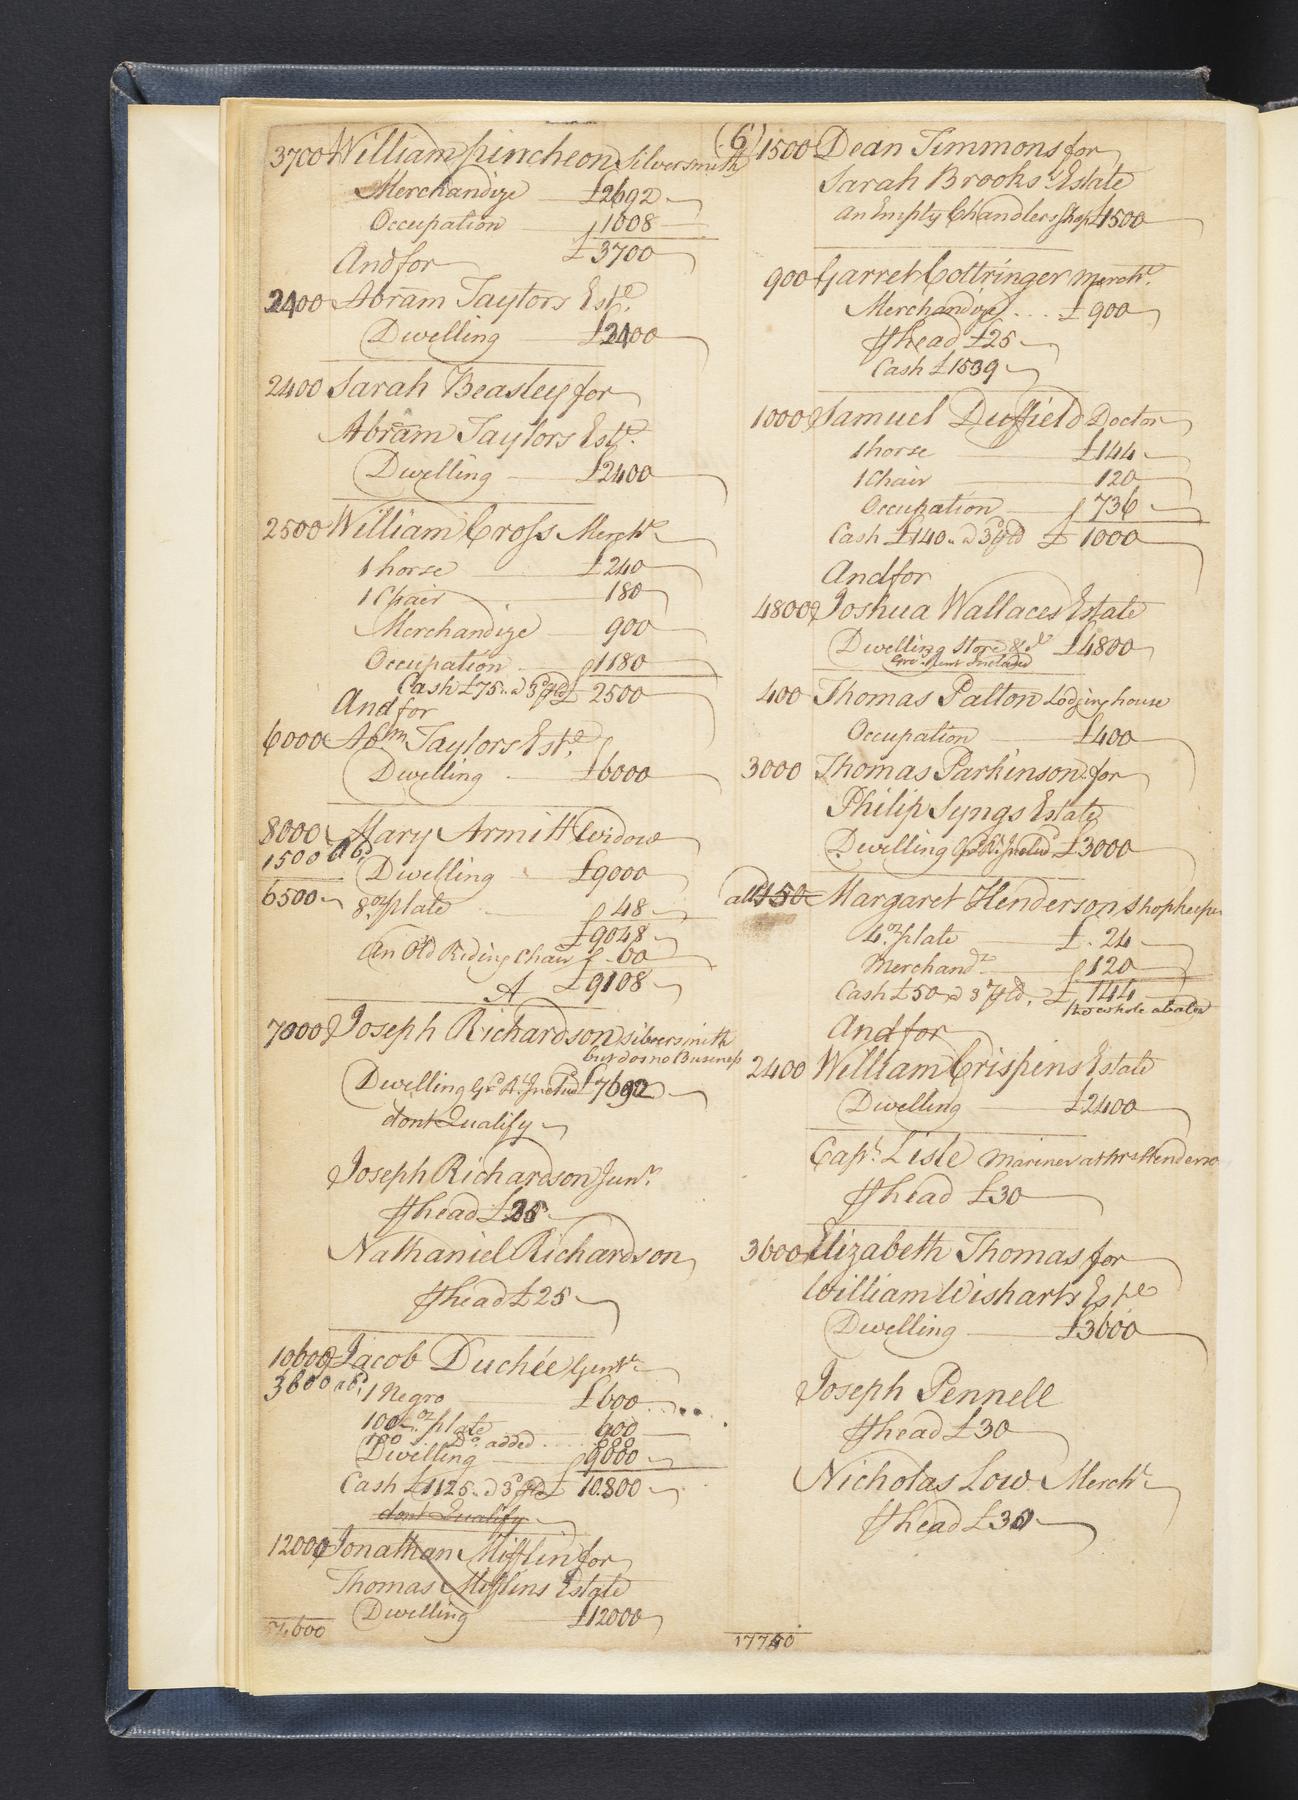 (6)
3700 William Pincheon Silversmith
Merchandize £2692
Occupation 1008
£3700
And for
2400 Abram Taylors Este.
Dwelling £2400
2400 Sarah Beasley for
Abram Taylors Este.
Dwelling £2400
2500 William Cross Mercht.
1 horse £240
1 Chair 180
Merchandize 900
Occupation 1180
Cash £75 £ 2500
And for
6000 Abm. Taylors Este.
Dwelling £6000
8000 Mary Armitt Widow
1500 abd.
Dwelling £9000
6500
8 oz plate 48
£9048
An Old Riding Chair 60
A £9108
7000 Joseph Richardson silversmith
but does no Business
Dwelling Gd. Rt. Includ. £7692
dont Qualify
Joseph Richardson Junr.
P head £25
Nathaniel Richardson
P head £25
10600 Jacob Duchée Gentn.
3600 abd.
1 Negro £600
100 oz plate 600
100 Do. added 600
Dwelling 9000
Cash £1125 £ 10.800
dont Qualify
12000 Jonathan Mifflin for
Thomas Mifflins Estate
Dwelling £12000
1500 Dean Timmons for
Sarah Brooks's Estate
an Empty Chandlers Shop £1500
900 Garret Cottringer Mercht.
Merchandize £900
P head £25
Cash £1539
1000 Samuel Duffield Doctor
1 horse £144
1 Chair 120
Occupation 736
Cash £140 £ 1000
And for
4800 Joshua Wallaces Estate
Dwelling Store &c £4800
Grd. Rent Included
400 Thomas Patton Lodging house
Occupation £400
3000 Thomas Parkinson for
Philip Syngs Estate
Dwelling Gr. Rt. Includ £3000
all 150 Margaret Henderson Shopkeeper
4 oz plate £. 24
Merchandz 120
Cash £50 £ 144
the whole abated
And for
2400 William Crispins Estate
Dwelling £2400
Capt. Lisle Mariner at Mrs Henderso
P head £30
3600 Elizabeth Thomas for
William Wisharts Este
Dwelling £3600
Joseph Pennell
P head £30
Nicholas Low Mercht.
P head £30
17750